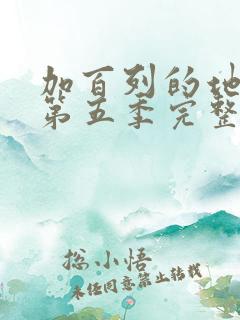 加百列的地
第五季完整
总小悟
未经同意禁止转载